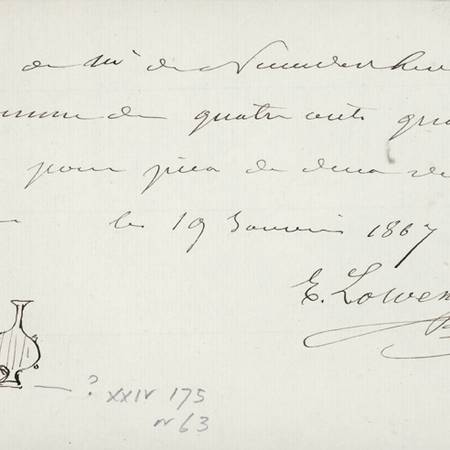 de Mr de Nieuwerker
omme de quatre cents qua
pour prix de deux
le 19 Janvier 1867
E. Lowen
— ? XXIV 175
nr 63